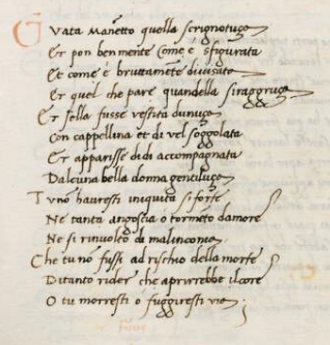 Guata Manetto quella scrignotuza
Et pon ben mente come e sfigurata
Et come e bruttamēte divisata
Et quel che pare quandella siraggruza
Et sella fusse vestita dunuza
Con cappellina et di vel soggolata
Et apparisse didi accompagnata
Dalcuna bella donna gentiluza
Tu nō hauresti iniquita si forte
Ne tanta angoscia o tormēto damore
Ne si rinuolto di malinconia
Che tu nō fussi ad rischio della morte
Di tanto rider che aprirrebbe il core
O tu morresti o fuggiresti via